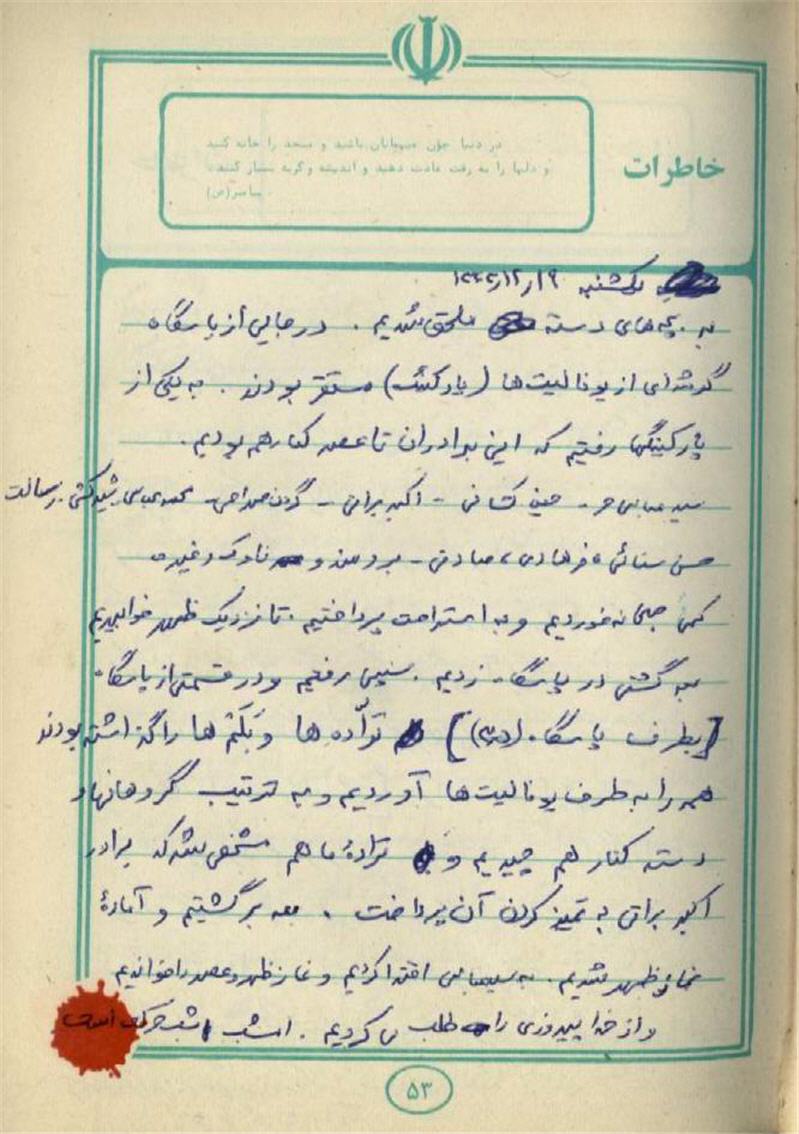 خاطرات
در دنیا چون میهمانان باشید و مسجد را خانه کنید
و دلها را به رقت عادت دهید و اندیشه و گریه بسیار کنید.
پیامبر(ص)
یکشنبه ۱۹/۱۲/
به بچه‌های دسته ملحق شدیم . در جایی از پاسگاه
گوشه‌ای از یونالیت‌ها ( ) مستقر بودند . به یکی از
پارکینگها رفتیم که این برادران تا عصر کنار هم بودیم .
سید عباس - حسین کاشانی - اکبر براتی - - محمد عباسی رسالت
حسن سنائی ، فرهادی ، صادقی - و و غیره
کمی صبحانه خوردیم و به استراحت پرداختیم . تا نزدیک ظهر خوابیدیم
بعد گشتی در پاسگاه زدیم . سپس رفتیم و در قسمتی از پاسگاه
[بطرف پاسگاه ( )] ترّاده ها و بَلَم ها را گذاشته بودند
همه را به طرف یونالیت ها آوردیم و به ترتیب گروهانها و
دسته کنار هم چیدیم و ترادهٔ ما هم مشخص شد که برادر
اکبر براتی به تمیز کردن آن پرداخت . بعد برگشتیم و آمادهٔ
نماز ظهر شدیم . به سید عباس اقتدا کردیم و نماز ظهر و عصر را خواندیم
و از خدا پیروزی را طلب می کردیم . امشب شب حرکت است
۵۳